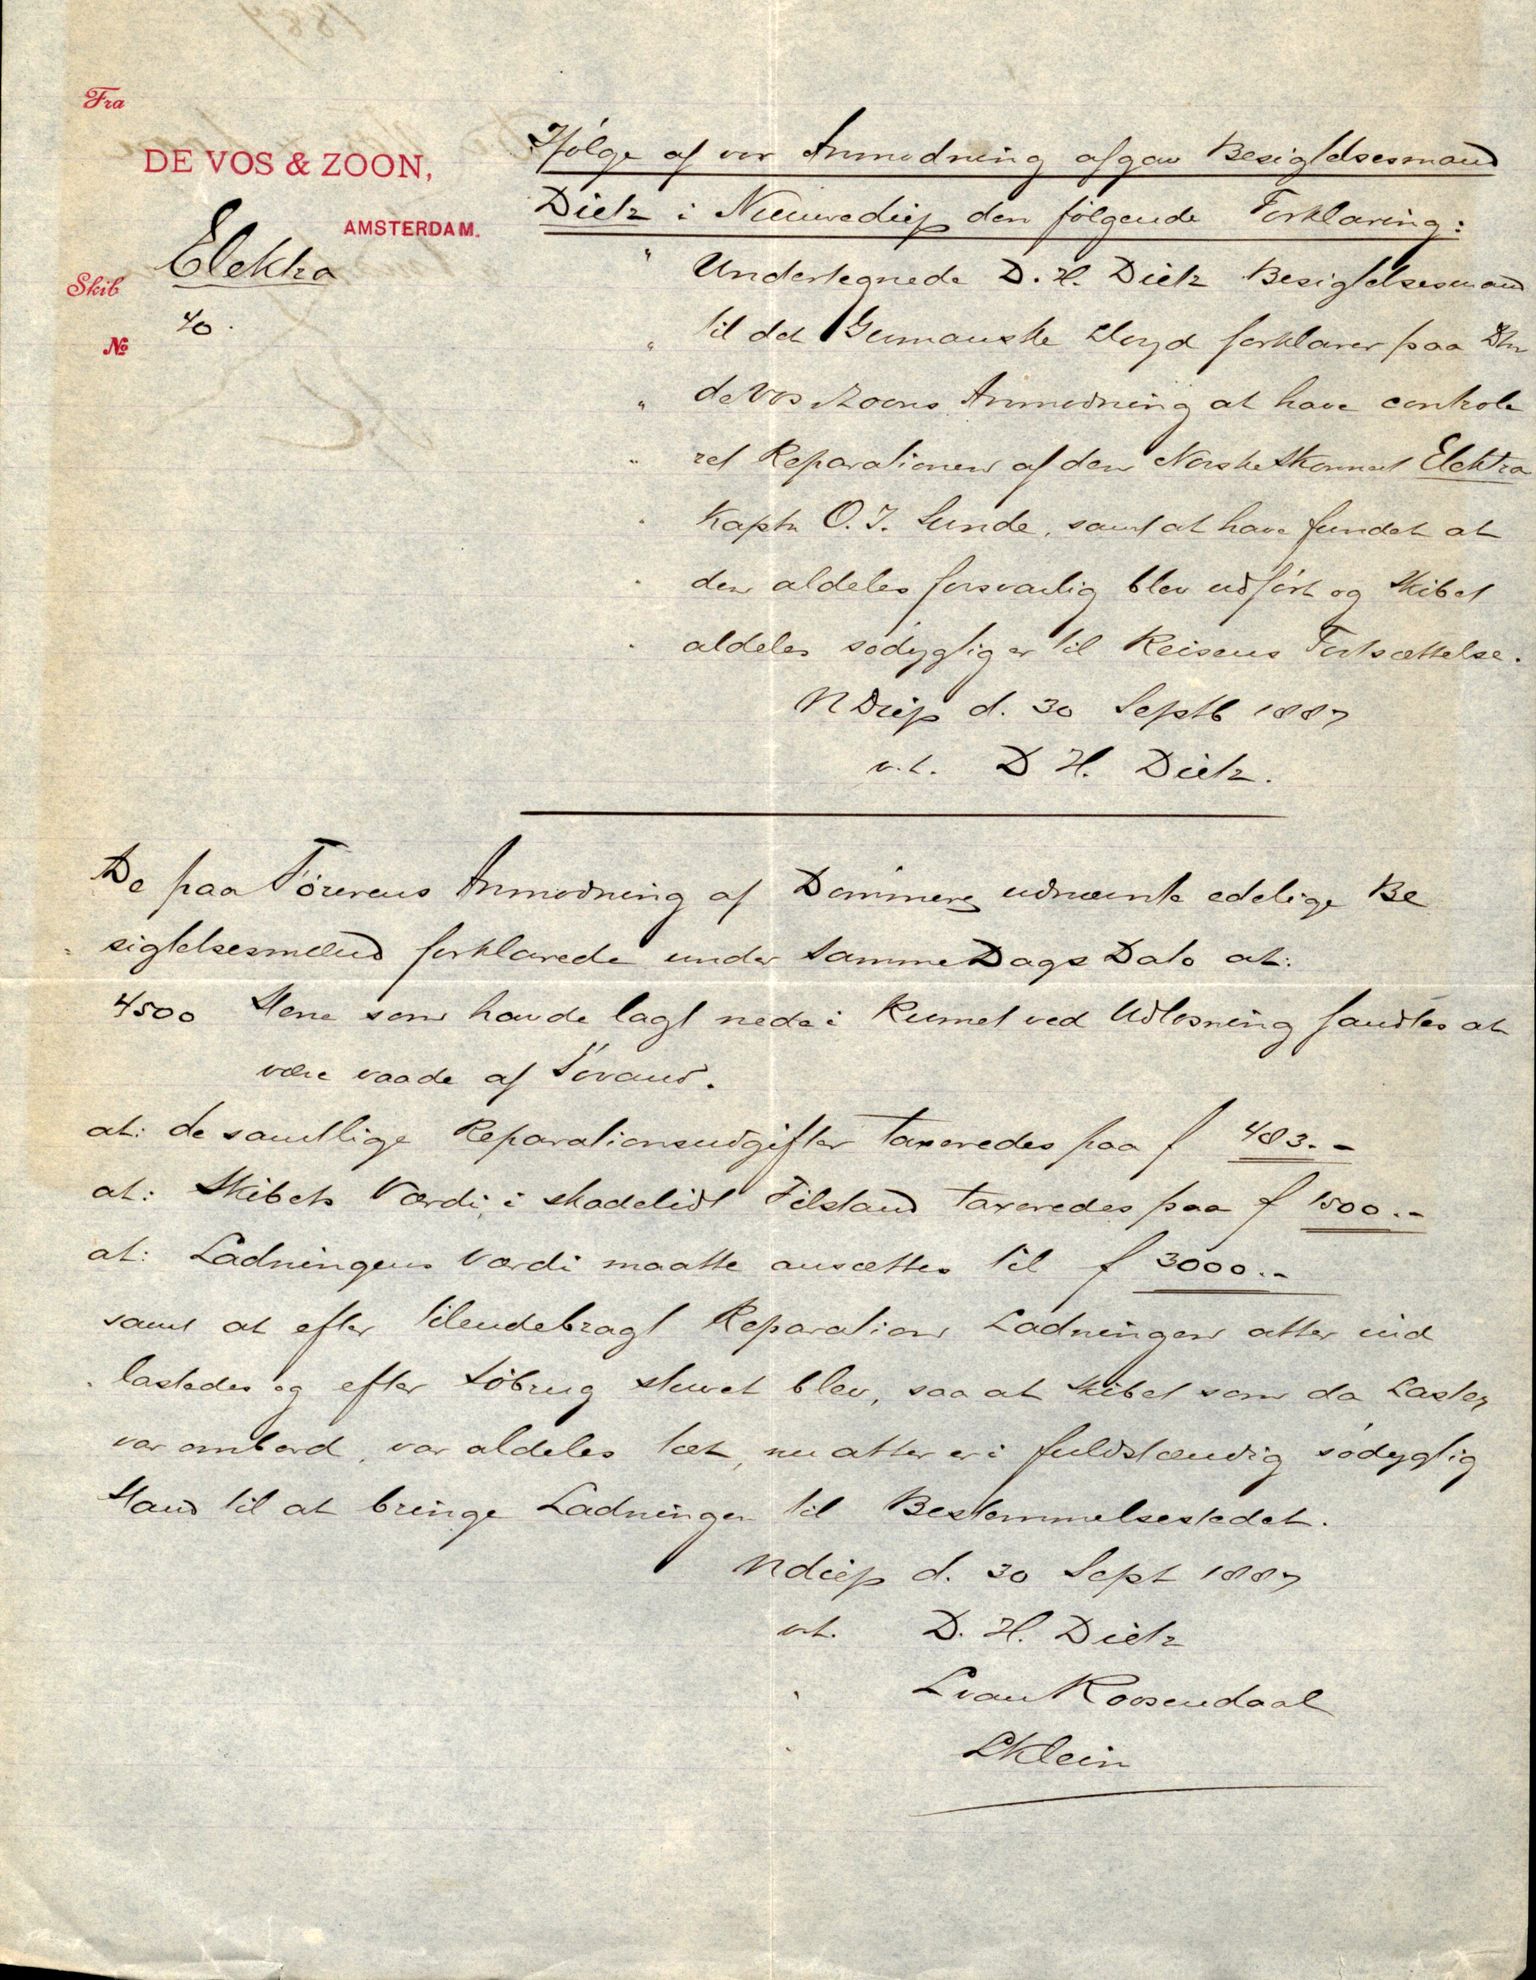 Fra
DE VOS & ZOON,
AMSTERDAM.
Skib Elektra
№ 40.
Ifølge af vor Anmodning afgav Besigtelsesmand
Dietz i Nieuwediep den følgende Forklaring:
" Undertegnede D. H. Dietz Besigtelsesmand
" til det Germanske Lloyd forklarer paa Dhrr
" de Vos & Zoons Anmodning at have controle
" ret Reparationen af den Norske Skonnert Elektra
" Kaptn O. J. Sunde, samt at have fundet at
" den aldeles forsvarlig blev udført og Skibet
" aldeles sødygtig er til Reisens Fortsættelse.
NDiep d. 30 Septb 1887
v.t. D H. Dietz.
De paa Førerens Anmodning af Dommeren udnævnte edelige Be
sigtelsesmænd forklarede under samme Dags Dato at:
4500 Stene som havde lagt nede i Rumet ved Udlosning fandtes at
være vaade af Søvand.
at: de samtlige Reparationsudgifter taxeredes paa f 483.-
at: Skibets Værdi i skadelidt Tilstand taxeredes paa f 1500.-
at: Ladningens Værdi maatte ansættes til f 3000.-
samt at efter tilendebragt Reparation Ladningen atter ind
lastedes og efter Søbrug stuvet blev, saa at Skibet som da Lasten
var ombord, var aldeles tæt, nu atter er i fuldstændig sødygtig
Stand til at bringe Ladningen til Bestemmelsesstedet.
Ndiep d. 30 Sept 1887
v.t. D. H. Dietz
" L van Roosendaal
" L Klein